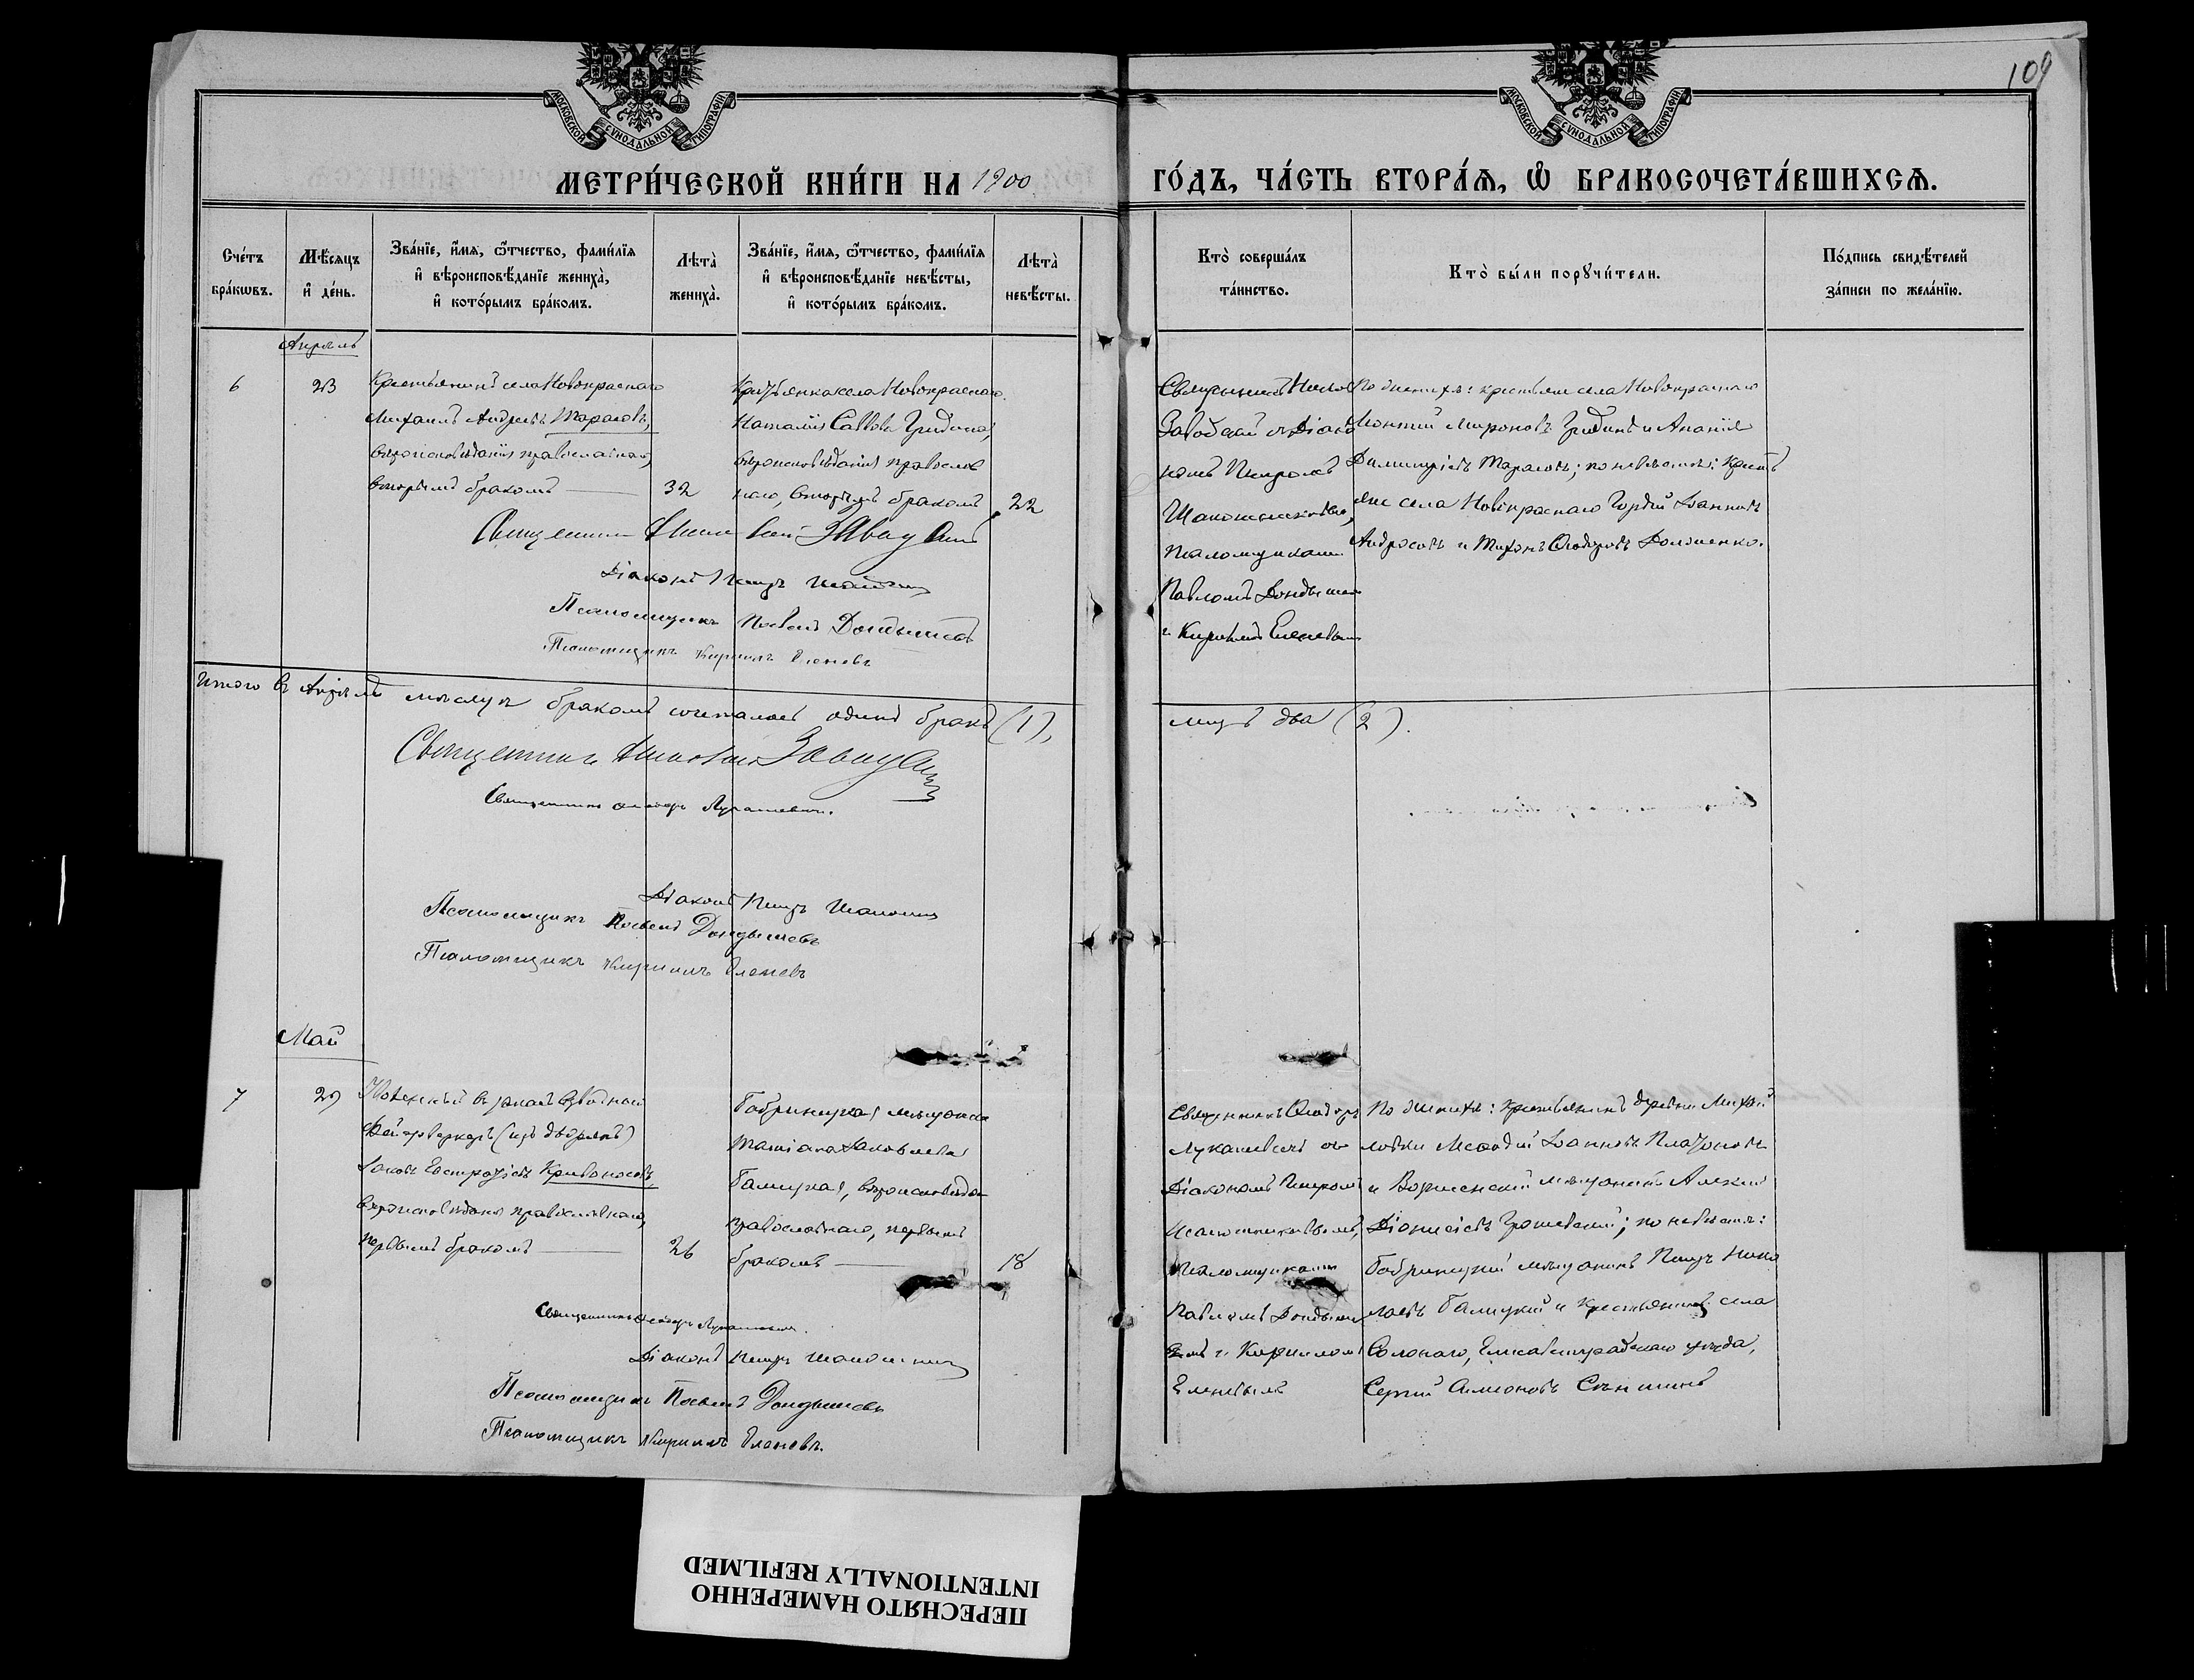 109
МОСКОВСКОЙ СѴНОДАЛЬНОЙ ТИПОГРАФІИ
МОСКОВСКОЙ СѴНОДАЛЬНОЙ ТИПОГРАФІИ
МЕТРИ́ЧЕСКОЙ КНИ́ГИ НА 1900
ГО́ДЪ, ЧА́СТЬ ВТОРА́Я, Ѽ БРАКОСОЧЕТА́ВШИХСЯ.
Сче́тъ
бра́кωвъ.
Мѣ́сяцъ
и҆ де́нь.
Зва́нїе, и҆́мя, ѻ҆́тчество, фами́лїя
и҆ вѣроисповѣ́данїе жениха̀,
и҆ кото́рымъ бра́комъ.
Лѣта̀
жениха̀.
Зва́нїе, и҆́мя, ѻ҆́тчество, фами́лїя
и҆ вѣроисповѣ́данїе невѣ́сты,
и҆ кото́рымъ бра́комъ.
Лѣта̀
невѣ́сты.
Кто̀ соверша́лъ
та́инство.
Кто̀ бы́ли порꙋчи́тели.
По́дпись свидѣ́телей
за́писи по жела́нїю.
Апрѣль
6
23
Крестьянинъ села Новокраснаго
Михаилъ Андреевъ Тарасовъ,
вѣроисповѣданія православнаго,
вторымъ бракомъ
32
села Новокраснаго
Наталія Саввова Гридина,
вѣроисповѣданія православ
наго, вторымъ бракомъ
22
Священникъ
Заводскій съ Діако
номъ Петромъ
псаломщиками
Павломъ
и Кирилломъ Еленевымъ
По женихѣ: крестьяне села Новокраснаго
Мироновъ Гридинъ и Ананія
Димитріевъ Тарасовъ; по невѣстѣ: крестья
не села Новокраснаго Гордій Іоанновъ
Андросовъ и Тихонъ Ѳеодоровъ
Священникъ
Діаконъ Петръ
Псаломщикъ Павелъ
Псаломщикъ Кириллъ Еленевъ
Итого въ Апрѣлѣ мѣсяцѣ бракомъ сочетался одинъ бракъ (1),
лицъ два (2).
Священникъ
Священникъ Ѳеодоръ Лукашевичъ.
Діаконъ Петръ
Псаломщикъ Павелъ
Псаломщикъ Кириллъ Еленевъ
Май
7
29
въ запасъ взводный
фейерверкеръ (изъ дворянъ)
Іаковъ Евстратіевъ Кривоносовъ,
вѣроисповѣданія православнаго,
первымъ бракомъ
26
Бобринецкая мѣщанка
Татіана Іаковлева
Галицкая, вѣроисповѣданія
православнаго, первымъ
бракомъ
18
Священникъ Ѳеодоръ
Лукашевичъ съ
Діакономъ Петромъ
псаломщиками
Павломъ
и Кирилломъ
Еленевымъ
По женихѣ: крестьянинъ деревни Михай
ловки Меѳодій Іоанновъ Платоновъ
и мѣщанинъ Алексій
Діонисіевъ; по невѣстѣ:
Бобринецкій мѣщанинъ Петръ Нико
лаевъ Галицкій и крестьянинъ села
Солонаго, Елисаветградскаго уѣзда,
Сергій Симеоновъ
Священникъ Ѳеодоръ Лукашевичъ.
Діаконъ Петръ
Псаломщикъ Павелъ
Псаломщикъ Кириллъ Еленевъ.
ПЕРЕСНЯТО НАМЕРЕННО
INTENTIONALLY REFILMED